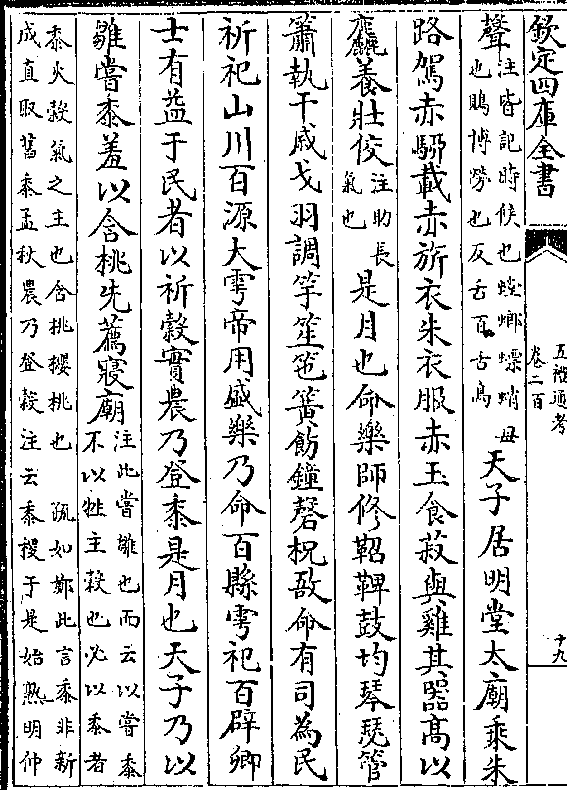 欽定四庫全書
五禮通考
卷二百
十九
聲
注皆記時候也螳螂螵蛸母
也鵙博勞也反舌百舌鳥
天子居明堂太廟乘朱
路駕赤駵載赤旂衣朱衣服赤玉食菽與雞其器高以
麤養壯佼
注助長
氣也
是月也命樂師修鞀鞞鼓均琴瑟管
簫執干戚戈羽調竽笙箎簧飭鐘磬柷敔命有司為民
祈祀山川百源大雩帝用盛樂乃命百縣雩祀百辟卿
士有益于民者以祈榖實農乃登黍是月也天子乃以
雛嘗黍羞以含桃先薦寢廟
注此嘗雛也而云以嘗黍
不以牲主穀也必以黍者
黍火穀氣之主也含桃櫻桃也　疏如鄭此言黍非新
成直取舊黍孟秋農乃登穀注云黍稷于是始熟明仲